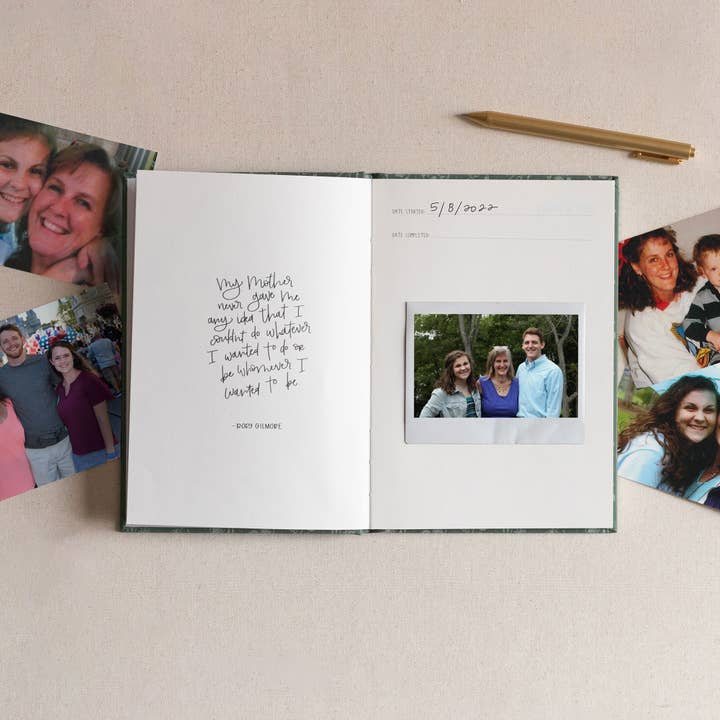 My Mother
never gave me
any idea that I
couldn't do whatever
I wanted to do or
be whomever I
wanted to be
- RORY GILMORE
DATE STARTED: 5/8/2022
DATE COMPLETED: